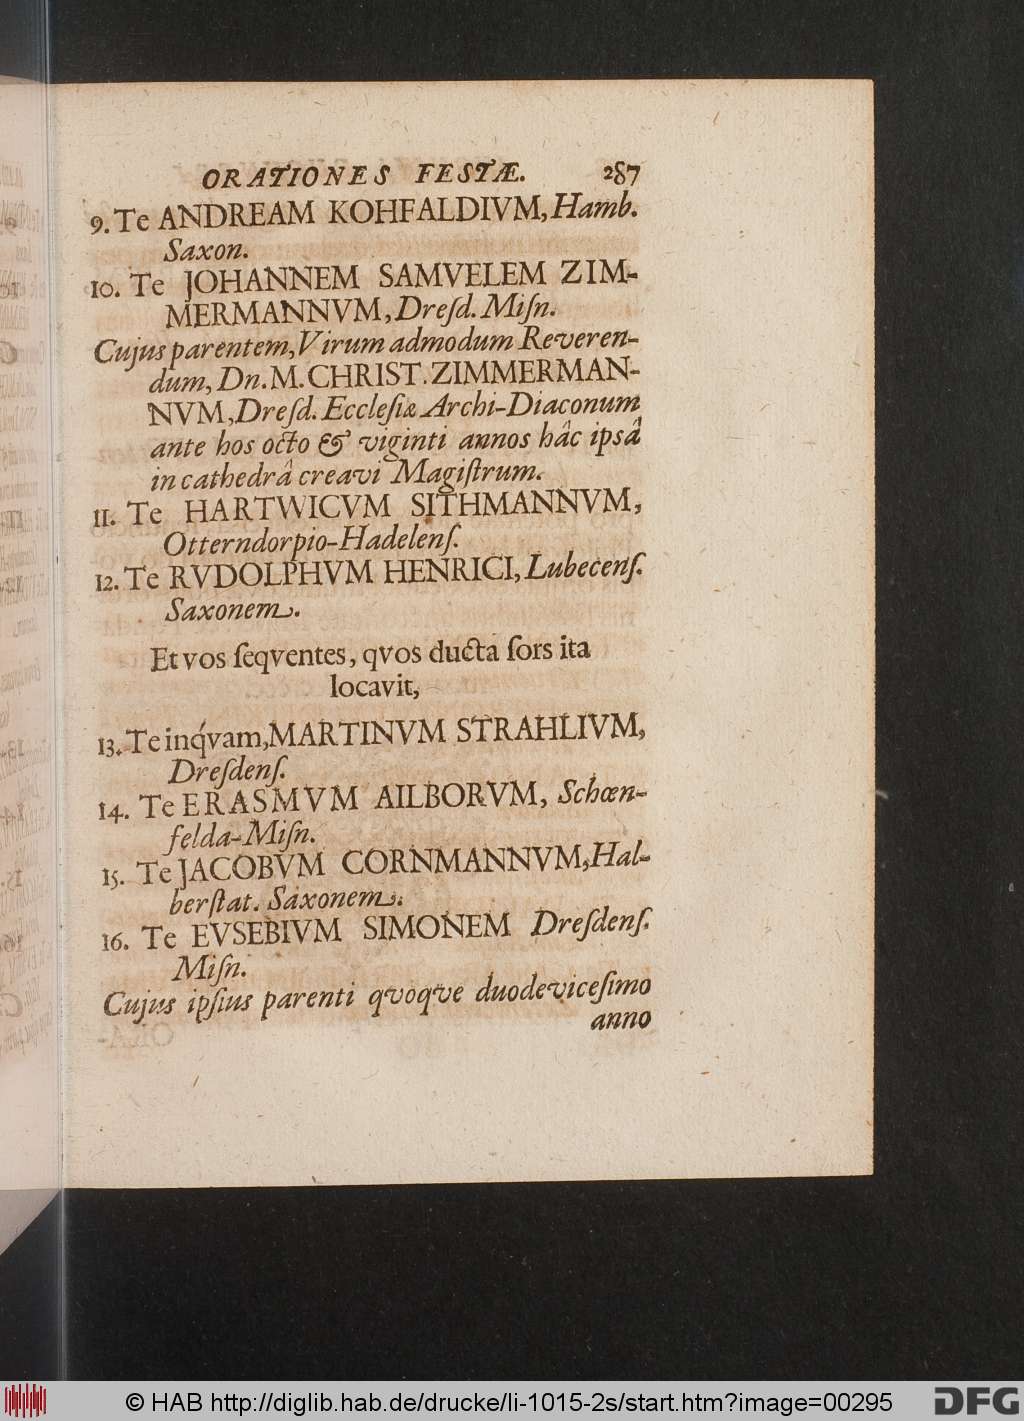 ORATIONES FESTÆ. 287
9. Te ANDREAM KOHFALDIVM, Hamb.
Saxon.
10. Te JOHANNEM SAMVELEM ZIM-
MERMANNVM, Dreſd. Miſn.
Cujus parentem, Virum admodum Reveren-
dum, Dn. M. CHRIST. ZIMMERMAN-
NVM, Dreſd. Eccleſiæ Archi-Diaconum
ante hos octo & viginti annos hâc ipsâ
in cathedrâ creavi Magiſtrum.
11. Te HARTWICVM SITHMANNVM,
Otterndorpio-Hadelenſ.
12. Te RVDOLPHVM HENRICI, Lubecenſ.
Saxonem.
Et vos ſeqventes, qvos ducta ſors ita
locavit,
13. Te inq́vam, MARTINVM STRAHLIVM,
Dreſdenſ.
14. Te ERASMVM AILBORVM, Schœn-
felda-Miſn.
15. Te JACOBVM CORNMANNVM, Hal-
berſtat. Saxonem.
16. Te EVSEBIVM SIMONEM Dreſdenſ.
Miſn.
Cujus ipſius parenti qvoqve duodeviceſimo
anno
© HAB http://diglib.hab.de/drucke/li-1015-2s/start.htm?image=00295
DFG